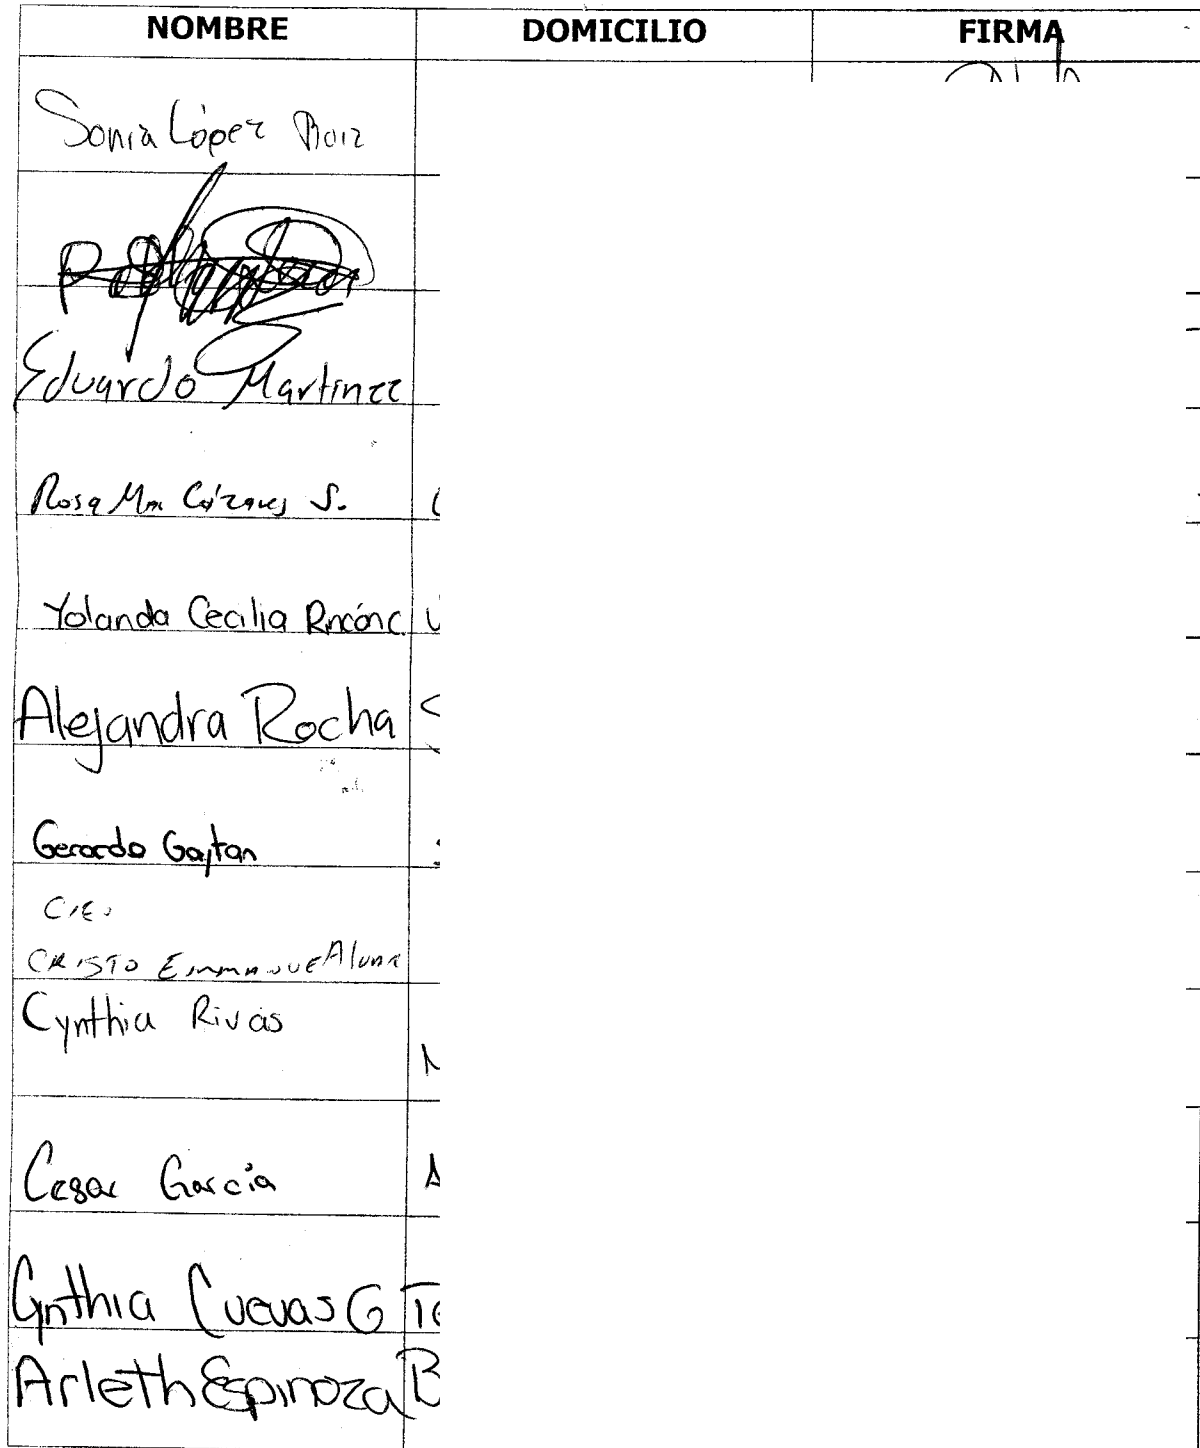 NOMBRE DOMICILIO FIRMA
Sonia López Ruiz
Eduardo Martinez
Rosa Ma Cázares S.
Yolanda Cecilia Rincón C
Alejandra Rocha
Gerardo Gaytan
C.E.
CRISTO Emmanuel
Cynthia Rivas
Cesar García
Cynthia Cuevas G
Arleth Espinoza